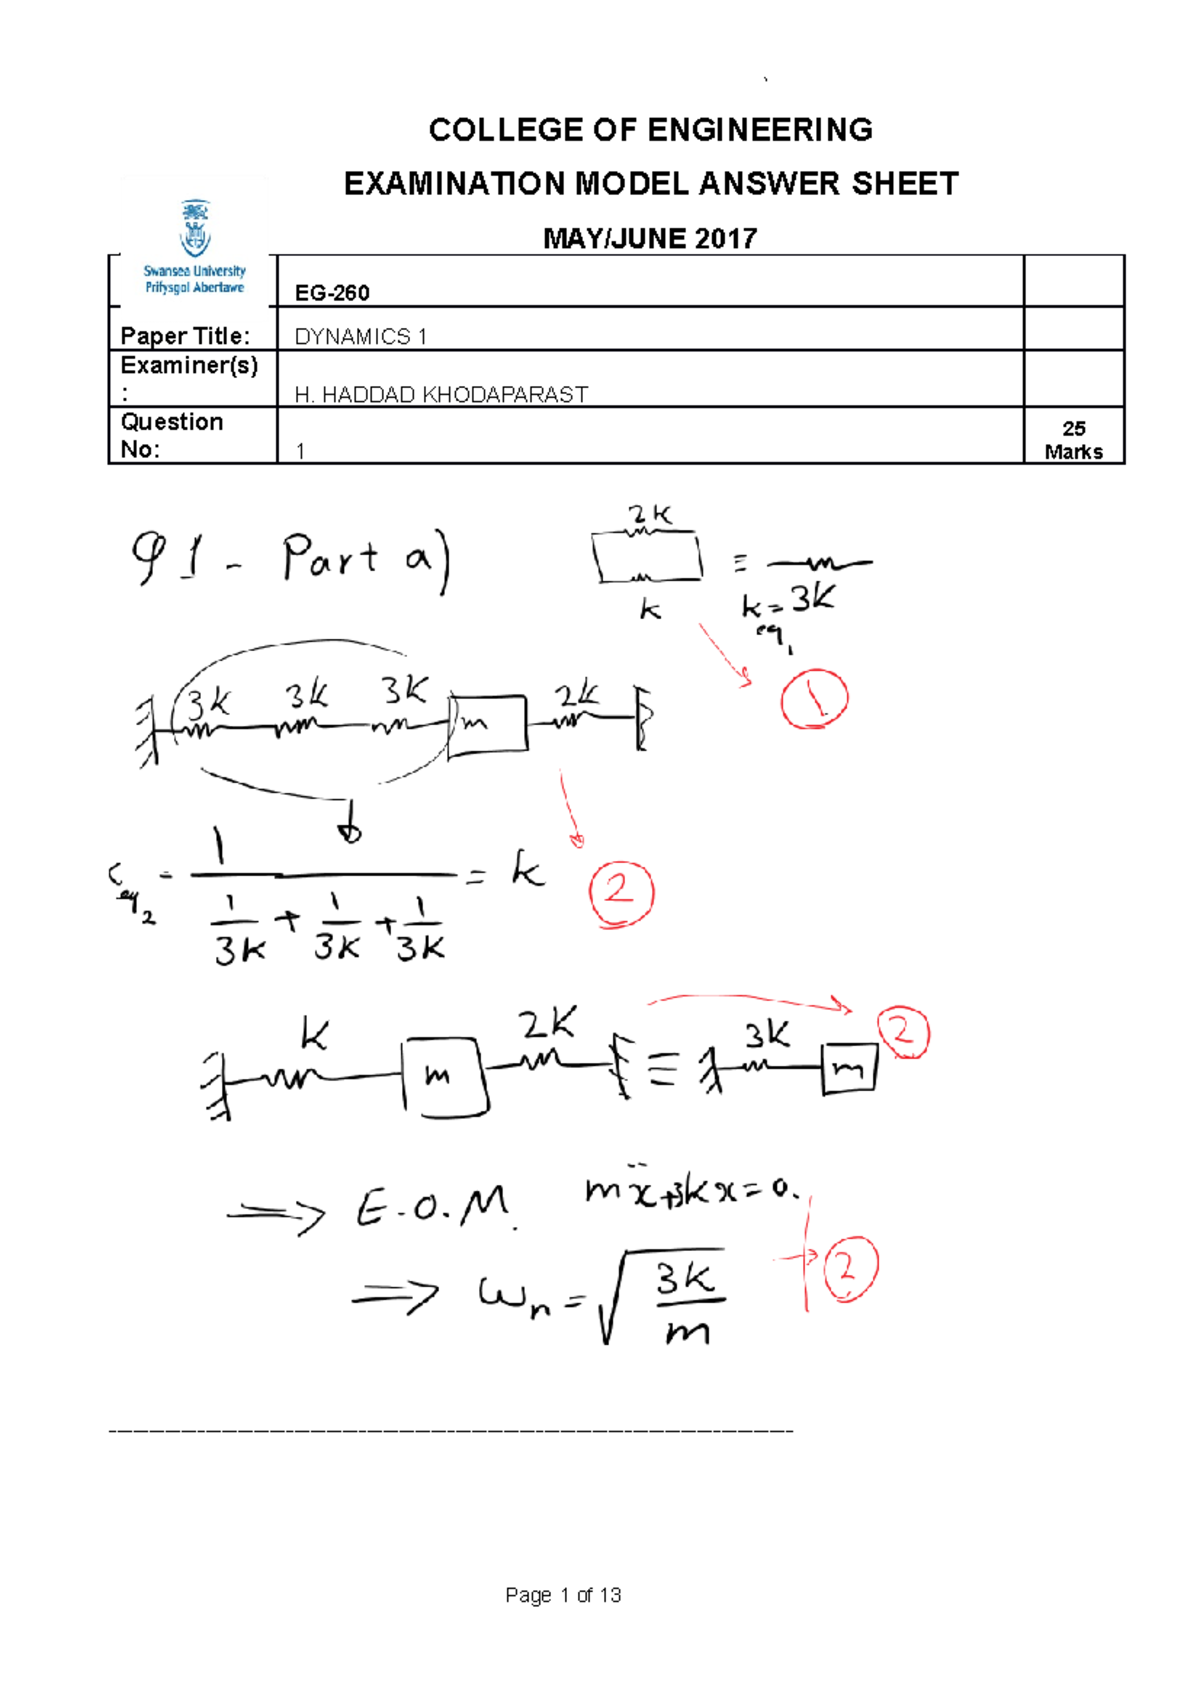 COLLEGE OF ENGINEERING
EXAMINATION MODEL ANSWER SHEET
MAY/JUNE 2017
Swansea University
Prifysgol Abertawe
EG-260
Paper Title: DYNAMICS 1
Examiner(s)
: H. HADDAD KHODAPARAST
Question
No: 1
25
Marks
Q1 - Part a)
2k
k
≡
k eq1 = 3k
1
3k 3k 3k m 2k
eq2 = 1 / (1/3k + 1/3k + 1/3k) = k
2
k m 2k ≡ 3k m
2
⇒ E.O.M. mẍ+3kx=0.
⇒ ωn = √(3k/m)
2
Page 1 of 13